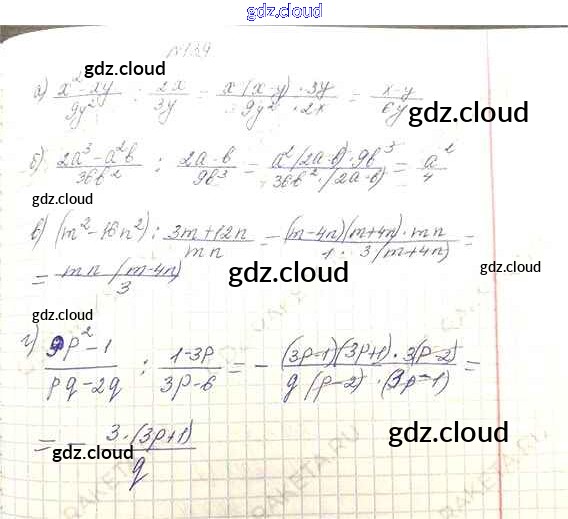 gdz.cloud
gdz.cloud
№139
gdz.cloud
а) (x² - xy)/(9y²) : 2x/3y = (x·(x-y)·3y)/(9y²·2x) = (x-y)/(6y)
gdz.cloud
б) (2a³-a²b)/(36b²) : (2a-b)/(9b³) = (a²(2a-b)·9b³)/(36b²·(2a-b)) = a²/4
gdz.cloud
gdz.cloud
в) (m²-16n²) : (3m+12n)/(mn) = ((m-4n)(m+4n)·mn)/(1·3(m+4n)) =
= (mn(m-4n))/3
gdz.cloud
gdz.cloud
г) (9p²-1)/(pq-2q) : (1-3p)/(3p-6) = - ((3p-1)(3p+1)·3(p-2))/(q(p-2)·(3p-1)) =
= - (3·(3p+1))/q
gdz.cloud
gdz.cloud
RAKETA.RU
RAKETA.RU